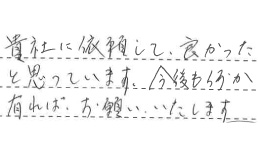 貴社に依頼して、良かった
と思っています。今後も何か
有れば、お願い、いたします